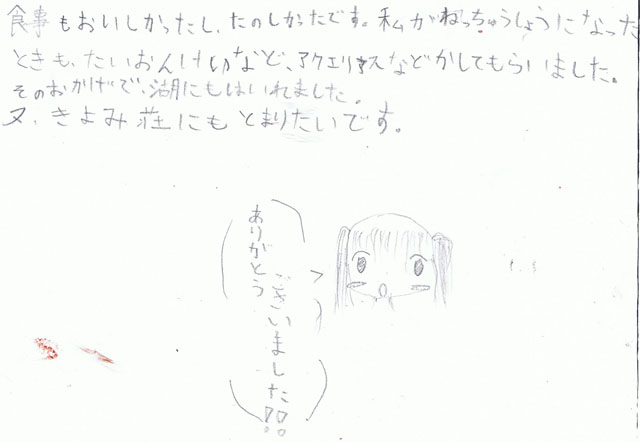 食事もおいしかったし、たのしかったです。私がねっちゅうしょうになった
ときも、たいおんけいなど、アクエリアスなどかしてもらいました。
そのおかげで、湖にもはいれました。
又、きよみ荘にもとまりたいです。
ありがとう
ございました!!